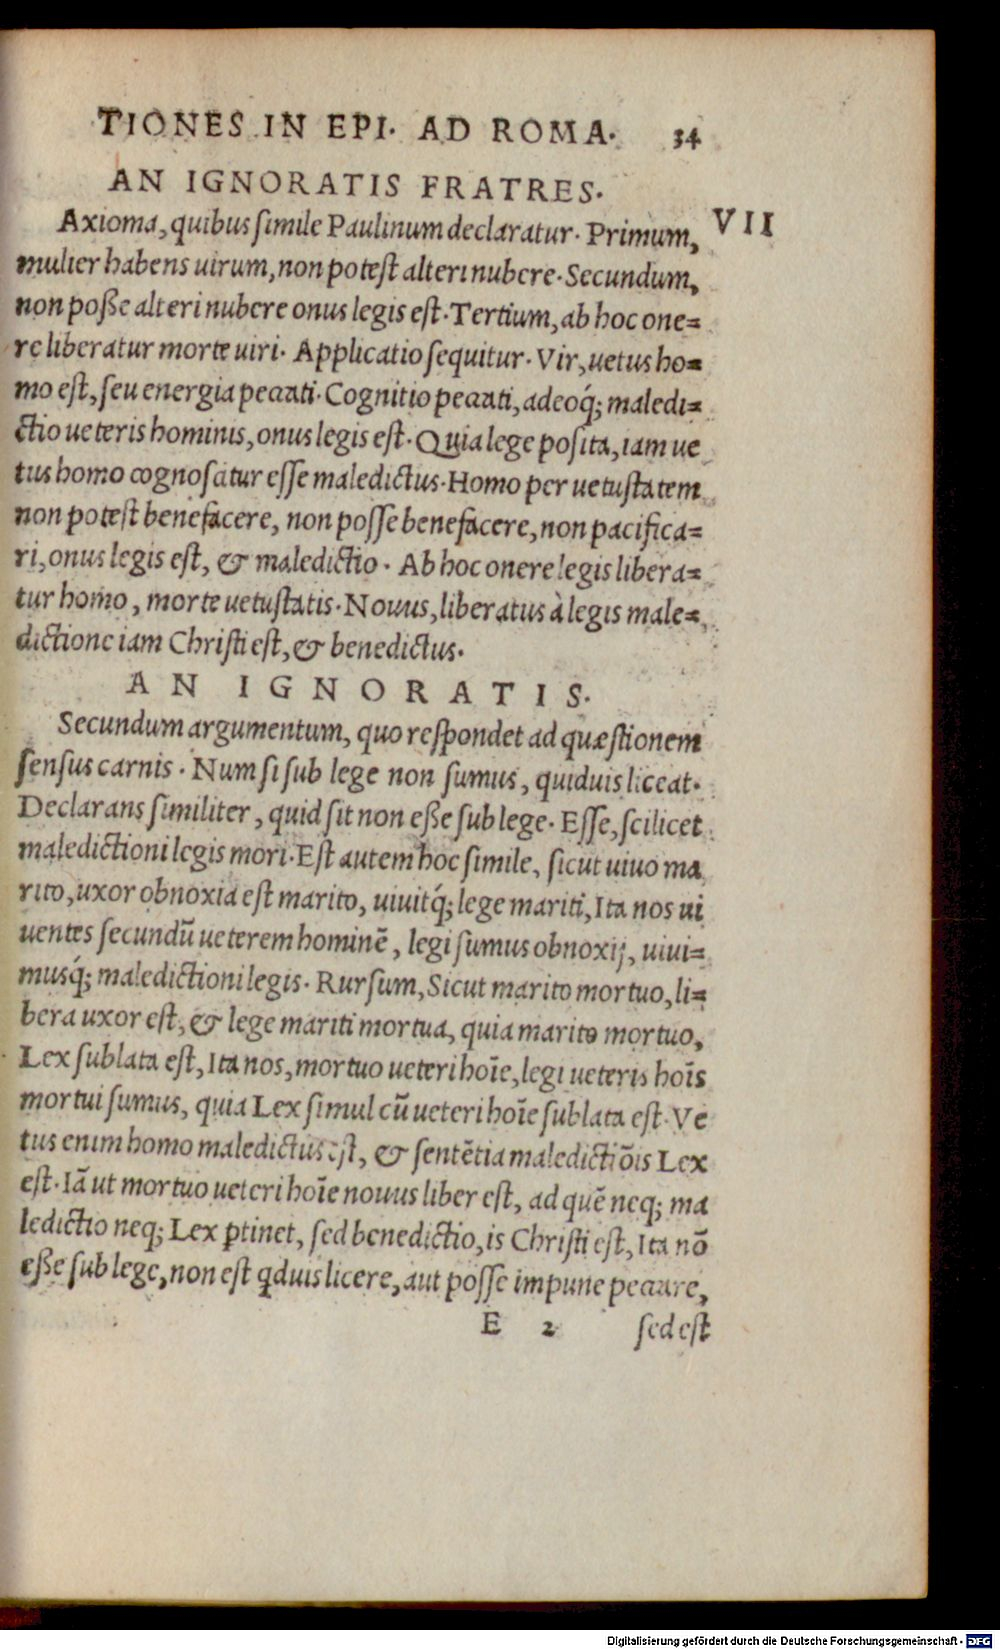 TIONES IN EPI. AD ROMA. 34
AN IGNORATIS FRATRES.
Axioma, quibus simile Paulinum declaratur. Primum, VII
mulier habens uirum, non potest alteri nubere. Secundum,
non posse alteri nubere onus legis est. Tertium, ab hoc one=
re liberatur morte uiri. Applicatio sequitur. Vir, uetus ho=
mo est, seu energia peccati. Cognitio peccati, adeoq́; maledi=
ctio ueteris hominis, onus legis est. Quia lege posita, iam ue
tus homo cognoscitur esse maledictus. Homo per uetustatem
non potest benefacere, non posse benefacere, non pacifica=
ri, onus legis est, & maledictio. Ab hoc onere legis libera=
tur homo, morte uetustatis. Nouus, liberatus à legis male=
dictione iam Christi est, & benedictus.
AN IGNORATIS.
Secundum argumentum, quo respondet ad quæstionem
sensus carnis. Num si sub lege non sumus, quiduis liceat.
Declarans similiter, quid sit non esse sub lege. Esse, scilicet
maledictioni legis mori. Est autem hoc simile, sicut uiuo ma
rito, uxor obnoxia est marito, uiuitq́; lege mariti, Ita nos ui
uentes secundũ ueterem hominẽ, legi sumus obnoxij, uiui=
musq́; maledictioni legis. Rursum, Sicut marito mortuo, li=
bera uxor est, & lege mariti mortua, quia marito mortuo,
Lex sublata est, Ita nos, mortuo ueteri hoĩe, legi ueteris hoĩs
mortui sumus, quia Lex simul cũ ueteri hoĩe sublata est. Ve
tus enim homo maledictus est, & sentẽtia maledictiõis Lex
est. Iã ut mortuo ueteri hoĩe nouus liber est, ad quẽ neq; ma
ledictio neq; Lex ꝑtinet, sed benedictio, is Christi est, Ita nõ
esse sub lege, non est qduis licere, aut posse impune peccare,
E 2 sed est
Digitalisierung gefördert durch die Deutsche Forschungsgemeinschaft - DFG